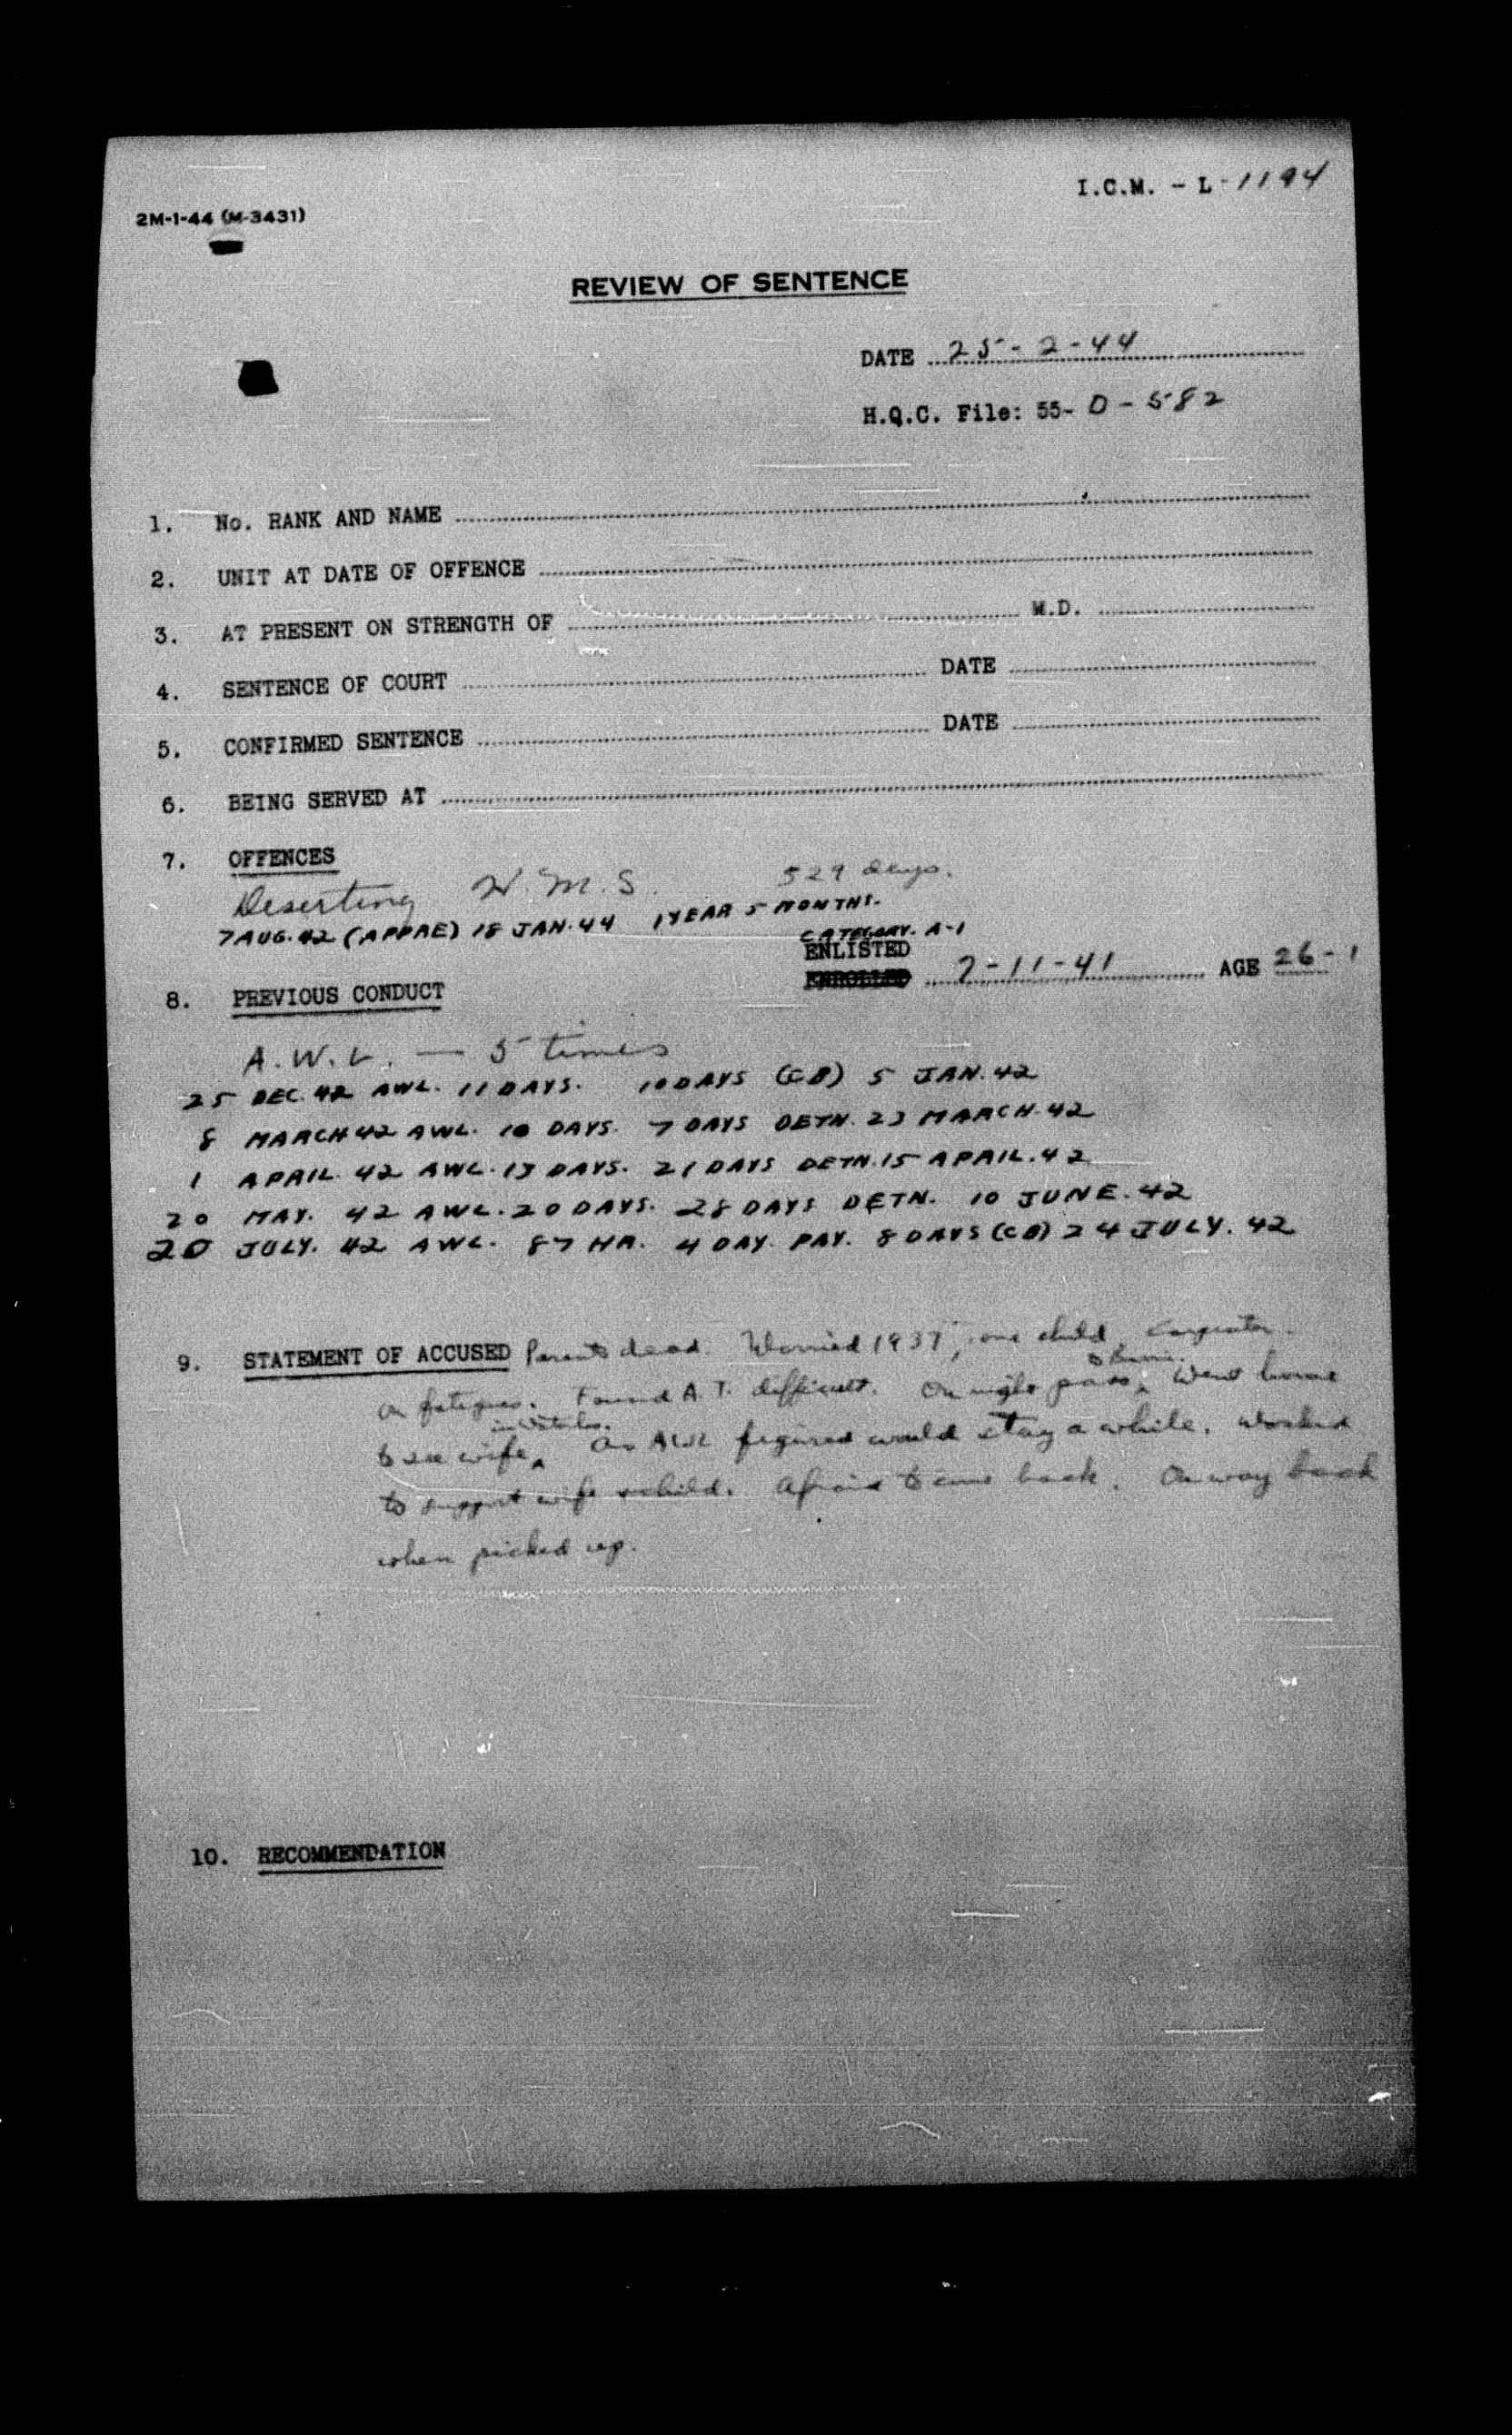 I.C.M. - L-1194
2M-1-44 (M-3431)
REVIEW OF SENTENCE
DATE 25-2-44
H.Q.C. File: 55- D-582
1. No. RANK AND NAME
2. UNIT AT DATE OF OFFENCE
3. AT PRESENT ON STRENGTH OF M.D.
4. SENTENCE OF COURT DATE
5. CONFIRMED SENTENCE DATE
6. BEING SERVED AT
7. OFFENCES
Deserting H.M.S. 529 days.
7 AUG. 42 (APPRE) 18 JAN. 44 1 YEAR 5 MONTHS.
CATEGORY. A-1
ENLISTED
ENROLLED 7-11-41 AGE 26-1
8. PREVIOUS CONDUCT
A.W.L. — 5 times
25 DEC. 42 AWL. 11 DAYS. 10 DAYS (CB) 5 JAN. 42
8 MARCH 42 AWL. 10 DAYS. 7 DAYS DETN. 23 MARCH. 42
1 APRIL. 42 AWL. 13 DAYS. 21 DAYS DETN. 15 APRIL. 42
20 MAY. 42 AWL. 20 DAYS. 28 DAYS DETN. 10 JUNE. 42
20 JULY. 42 AWL. 87 HR. 4 DAY. PAY. 8 DAYS (CB) 24 JULY. 42
9. STATEMENT OF ACCUSED Parents dead. Married 1937, one child, Carpenter.
to Barrie.
on fatigues. Found A.T. difficult. On night pass, went home
to see wife. As AWL figured would stay a while. Worked
to support wife & child. Afraid to come back. On way back
when picked up.
10. RECOMMENDATION